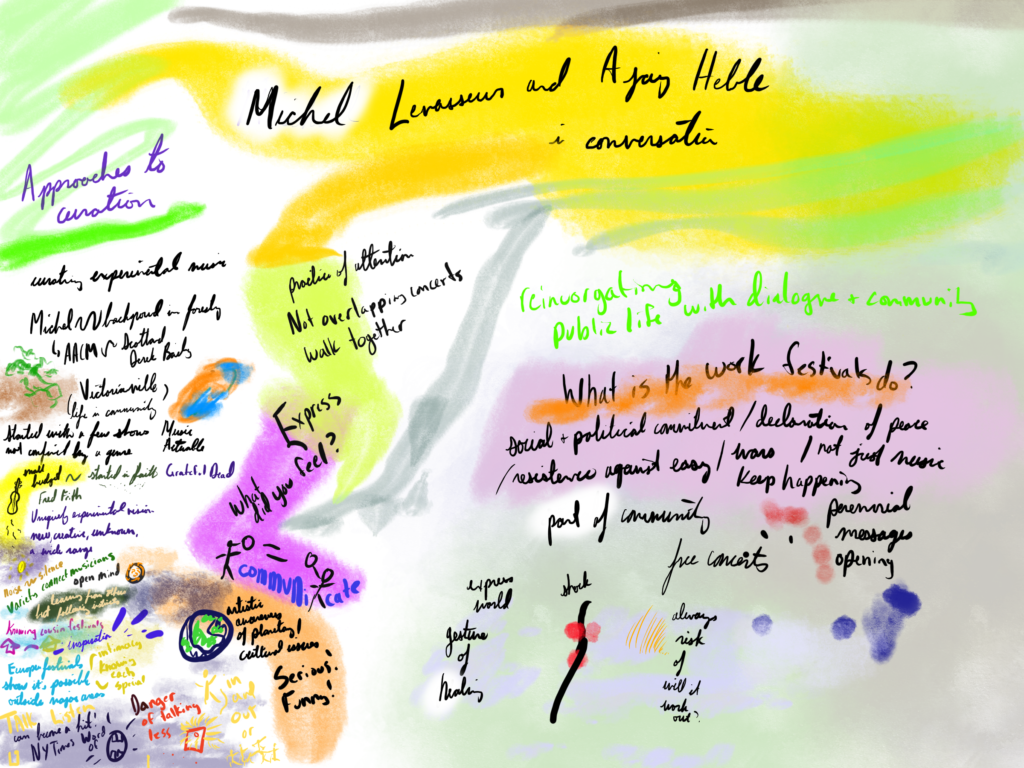 Michel Levasseur and Ajay Heble
in conversation
Approaches to
curation
curating experimental music
Michel background in forestry
↳ AACM Scotland
Derek Baily
Victoriaville
(life in community)
started with a few shows
not confined by a genre
Music
Actuelle
small
budget started in faith
Grateful Dead
Fred Frith
Uniquely experimental vision
new creative, unknown,
a wide range
noise silence
Variety connect musicians
open mind
learning from other
Knowing cousin festivals
inspiration
European festivals
show it's possible
outside major areas
intimacy
knowing
each
special
Talk Listen
can become a hit!
NY Times Word
of
Danger
of talking
less
in
out
or
practice of attention
Not overlapping concerts
walk together
Express
What
did you
feel?
communicate
artistic
awareness
of planetary/
cultural issues
Serious!
Funny!
reinvorgating
public life with dialogue + community
What is the work festivals do?
social + political commitment / declaration of peace
/ resistence against easy / wars / not just music
keep happening
part of community
free concerts
perennial
messages
opening
express
world
shock
gesture
of
healing
always
risk
of
will it
work
out?